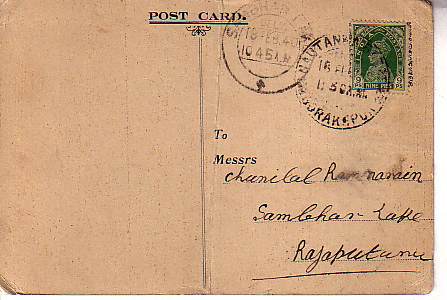 POST CARD.
18 FEB 40
10 45 A.M
NAUTAN
16 FE
GORAKHPUR
NINE PIES
To
Messrs
Chunilal Ramnarain
Sambhar Lake
Rajaputana